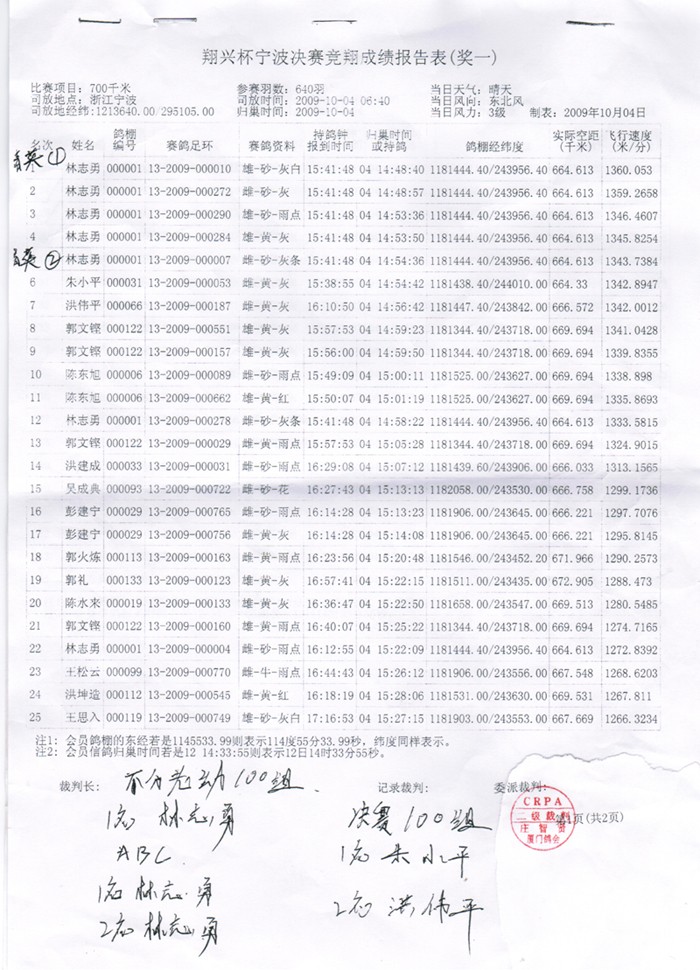 翔兴杯宁波决赛竞翔成绩报告表(奖一)
比赛项目: 700千米 参赛羽数: 640羽 当日天气: 晴天
司放地点: 浙江宁波 司放时间: 2009-10-04 06:40 当日风向: 东北风
司放地经纬:1213640.00/295105.00 归巢时间: 2009-10-04 当日风力: 3级 制表: 2009年10月04日
名次 姓名 鸽棚编号 赛鸽足环 赛鸽资料 持鸽钟报到时间 归巢时间或持鸽 鸽棚经纬度 实际空距(千米) 飞行速度(米/分)
(1) 林志勇 000001 13-2009-000010 雄-砂-灰白 15:41:48 04 14:48:40 1181444.40/243956.40 664.613 1360.053
2 林志勇 000001 13-2009-000272 雄-砂-灰 15:41:48 04 14:48:57 1181444.40/243956.40 664.613 1359.2658
3 林志勇 000001 13-2009-000290 雄-砂-雨点 15:41:48 04 14:53:36 1181444.40/243956.40 664.613 1346.4607
4 林志勇 000001 13-2009-000284 雄-黄-灰 15:41:48 04 14:53:50 1181444.40/243956.40 664.613 1345.8254
② 林志勇 000001 13-2009-000007 雌-砂-灰条 15:41:48 04 14:54:36 1181444.40/243956.40 664.613 1343.7384
6 朱小平 000031 13-2009-000053 雌-黄-灰 15:38:55 04 14:54:42 1181438.40/244010.00 664.33 1342.8947
7 洪伟平 000066 13-2009-000187 雌-黄-灰 16:10:50 04 14:56:42 1181447.40/243842.00 666.572 1342.0012
8 郭文铿 000122 13-2009-000551 雄-黄-灰 15:57:53 04 14:59:23 1181344.40/243718.00 669.694 1341.0428
9 郭文铿 000122 13-2009-000157 雄-黄-灰 15:56:00 04 14:59:50 1181344.40/243718.00 669.694 1339.8355
10 陈东旭 000006 13-2009-000089 雌-砂-雨点 15:49:09 04 15:00:11 1181525.00/243627.00 669.694 1338.898
11 陈东旭 000006 13-2009-000662 雌-黄-红 15:50:07 04 15:01:19 1181525.00/243627.00 669.694 1335.8693
12 林志勇 000001 13-2009-000278 雌-砂-灰条 15:41:48 04 14:58:22 1181444.40/243956.40 664.613 1333.5815
13 郭文铿 000122 13-2009-000029 雄-黄-雨点 15:57:53 04 15:05:28 1181344.40/243718.00 669.694 1324.9015
14 洪建成 000033 13-2009-000031 雌-砂-雨点 16:29:08 04 15:07:12 1181439.60/243906.00 666.033 1313.1565
15 吴成典 000093 13-2009-000722 雌-砂-花 16:27:43 04 15:13:13 1182058.00/243530.00 666.758 1299.1736
16 彭建宁 000029 13-2009-000765 雌-砂-雨点 16:14:28 04 15:13:23 1181906.00/243645.00 666.221 1297.7076
17 彭建宁 000029 13-2009-000756 雌-黄-灰 16:14:28 04 15:14:08 1181906.00/243645.00 666.221 1295.8145
18 郭火炼 000113 13-2009-000163 雄-黄-雨点 16:23:56 04 15:20:48 1181546.00/243452.20 671.966 1290.2573
19 郭礼 000133 13-2009-000123 雄-黄-灰 16:57:41 04 15:22:15 1181511.00/243435.00 672.905 1288.473
20 陈水来 000019 13-2009-000133 雄-黄-灰 16:36:47 04 15:22:50 1181658.00/243547.00 669.513 1280.5485
21 郭文铿 000122 13-2009-000160 雄-黄-雨点 16:40:07 04 15:25:22 1181344.40/243718.00 669.694 1274.7165
22 林志勇 000001 13-2009-000004 雌-砂-雨点 16:12:55 04 15:22:09 1181444.40/243956.40 664.613 1272.8392
23 王松云 000099 13-2009-000770 雌-牛-雨点 16:44:43 04 15:26:12 1181906.00/243556.00 667.548 1268.6203
24 洪坤造 000112 13-2009-000545 雌-黄-红 16:18:19 04 15:28:06 1181531.00/243630.00 669.531 1267.811
25 王思入 000119 13-2009-000749 雄-砂-灰白 17:16:53 04 15:27:15 1181903.00/243553.00 667.669 1266.3234
注1: 会员鸽棚的东经若是1145533.99则表示114度55分33.99秒, 纬度同样表示。
注2: 会员信鸽归巢时间若是12 14:33:55则表示12日14时33分55秒。
裁判长: 记录裁判: 委派裁判:
100组
1名 林志勇
ABC
1名 林志勇
2名 林志勇
决赛100组
1名 朱小平
2名 洪伟平
CRPA
二级裁判
庄智贤
厦门鸽会
第1页(共2页)